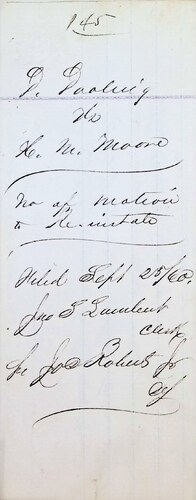 145
D. Dooling
vs
H. M. Moore
No of motion
to Re-instate
Filed Sept 25/60.
Jno S Lambert
Clerk
Jos Roberts Jr